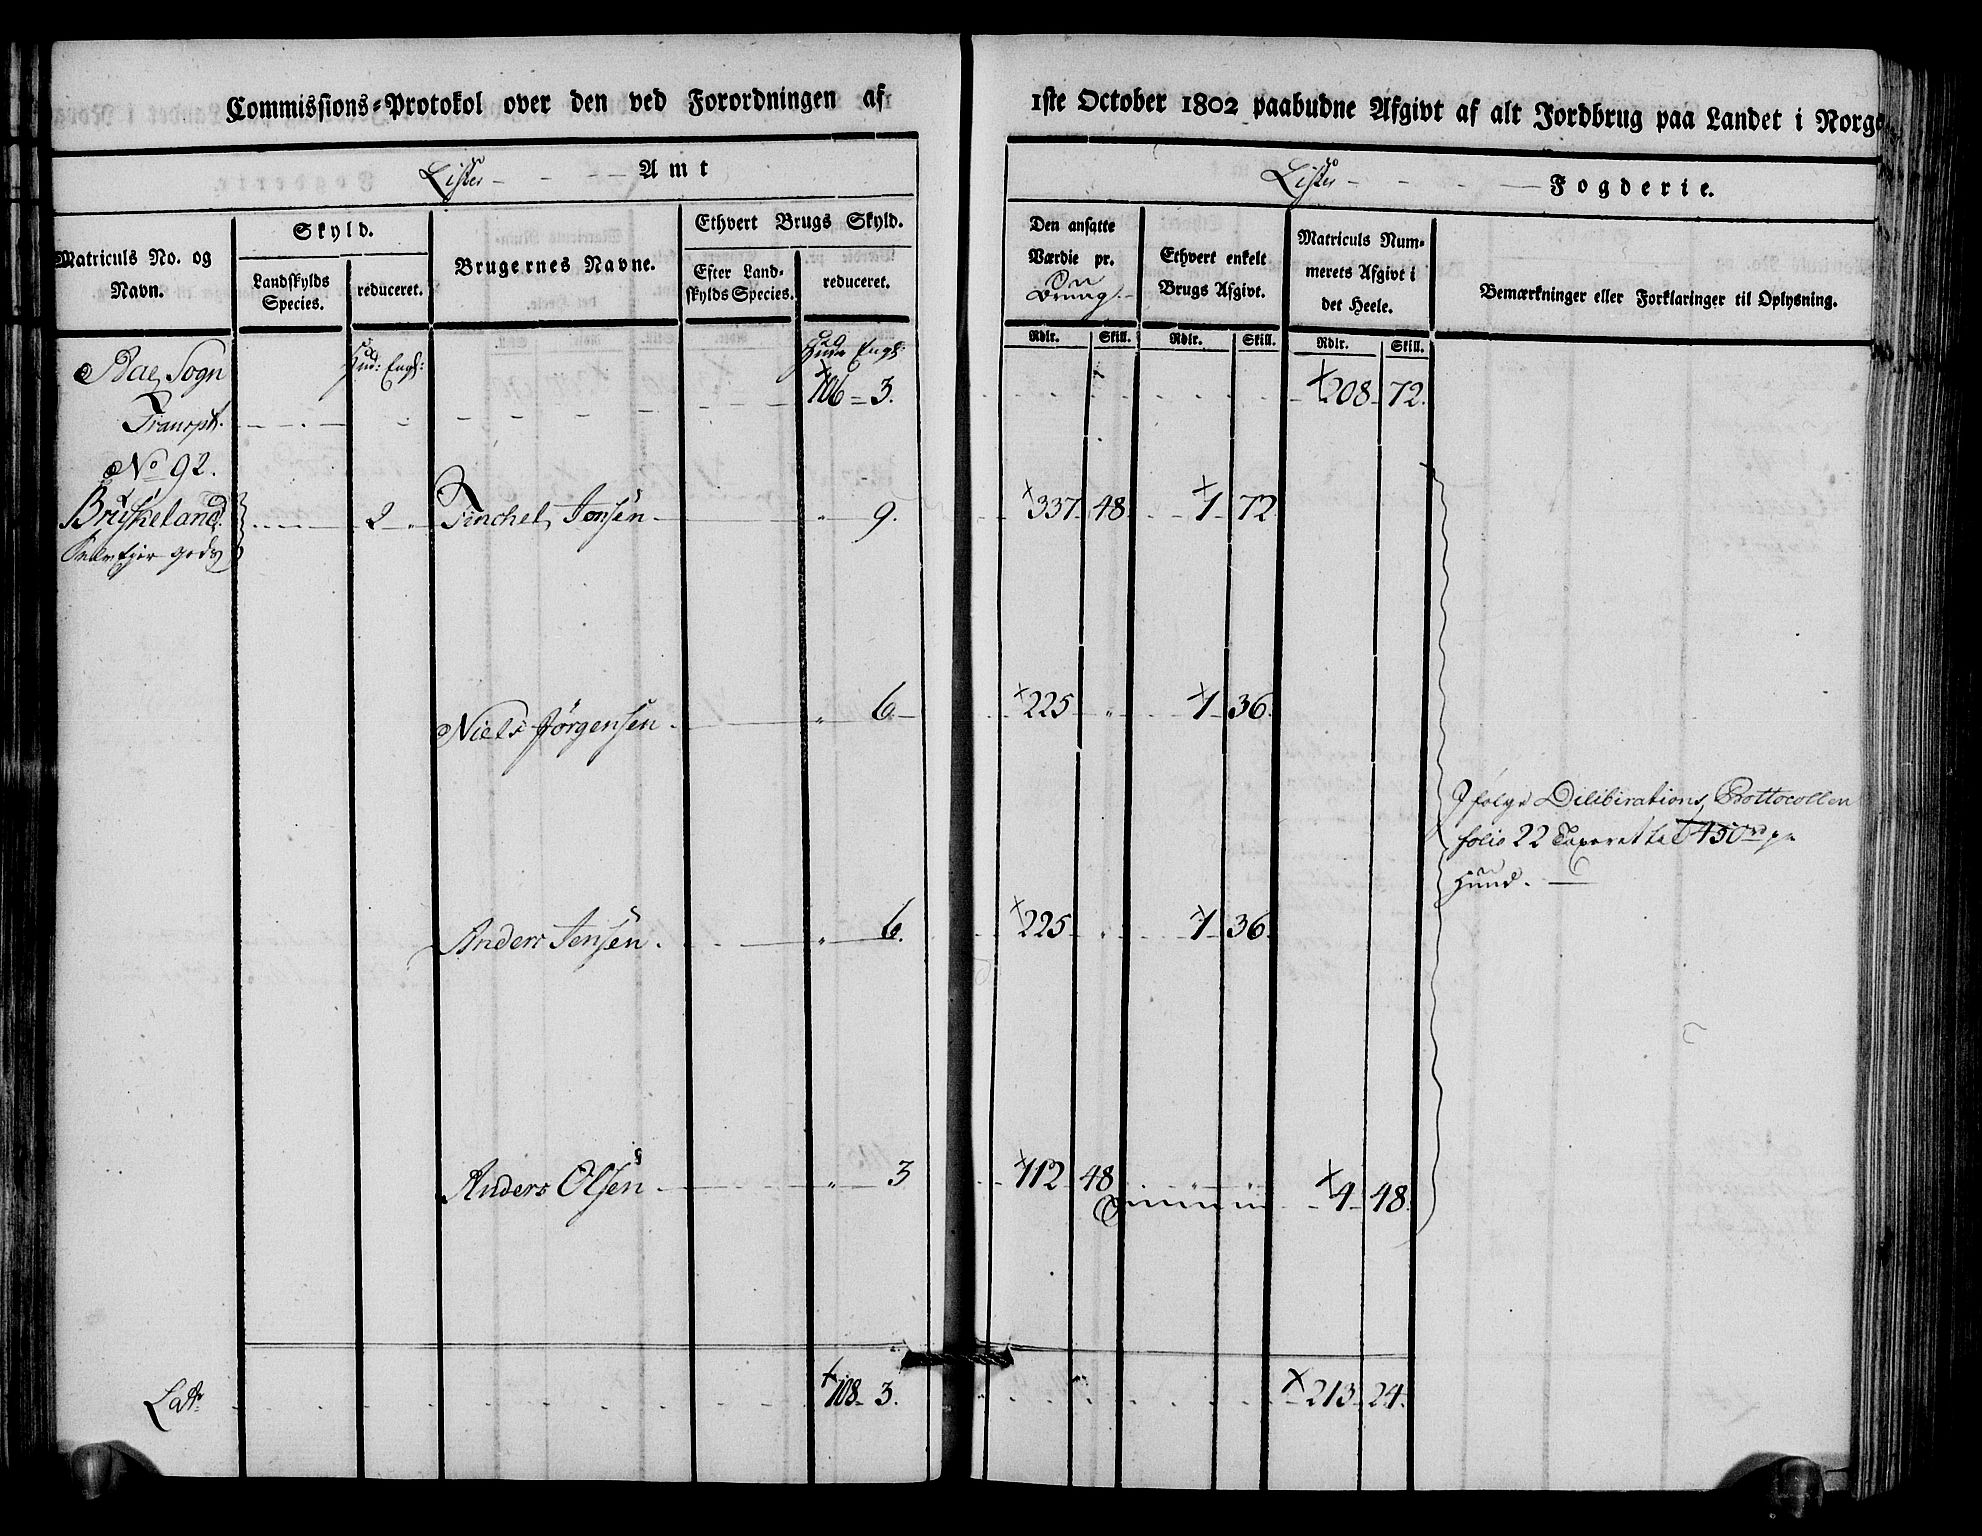 Commissions-Protokol over den ved Forordningen af
1ste October 1802 paabudne Afgivt af alt Jordbrug paa Landet i Norge
Lister Amt
Lister Fogderie.
Matriculs No. og Navn.
Skyld.
Landskylds Species.
reduceret.
Brugernes Navne.
Ethvert Brugs Skyld.
Efter Landskylds Species.
reduceret.
Den ansatte Værdie pr.
Brug
Ethvert enkelt Brugs Afgivt.
Matriculs Nummerets Afgivt i det Heele.
Bemærkninger eller Forklaringer til Oplysning.
Rdlr. Skill. Rdlr. Skill. Rdlr. Skill.
Hud: Eng: Hude Eng
Bae Sogn
Transpt. 106 3. 208 72.
No 92.
Bryskeland 2 Tinchel Jonsen 9. 337 48 1 72
Selv Ejer gods
Niels Jörgensen 6 225 1 36
Ifølge Delibirations Prottocollen
folio 22 Taxeret til 450 rd pr
Hund.
Anders Jensen. 6. 225 1 36
Anders Olsen 3 112 48 4 48
Lat 108 3. 213 24.